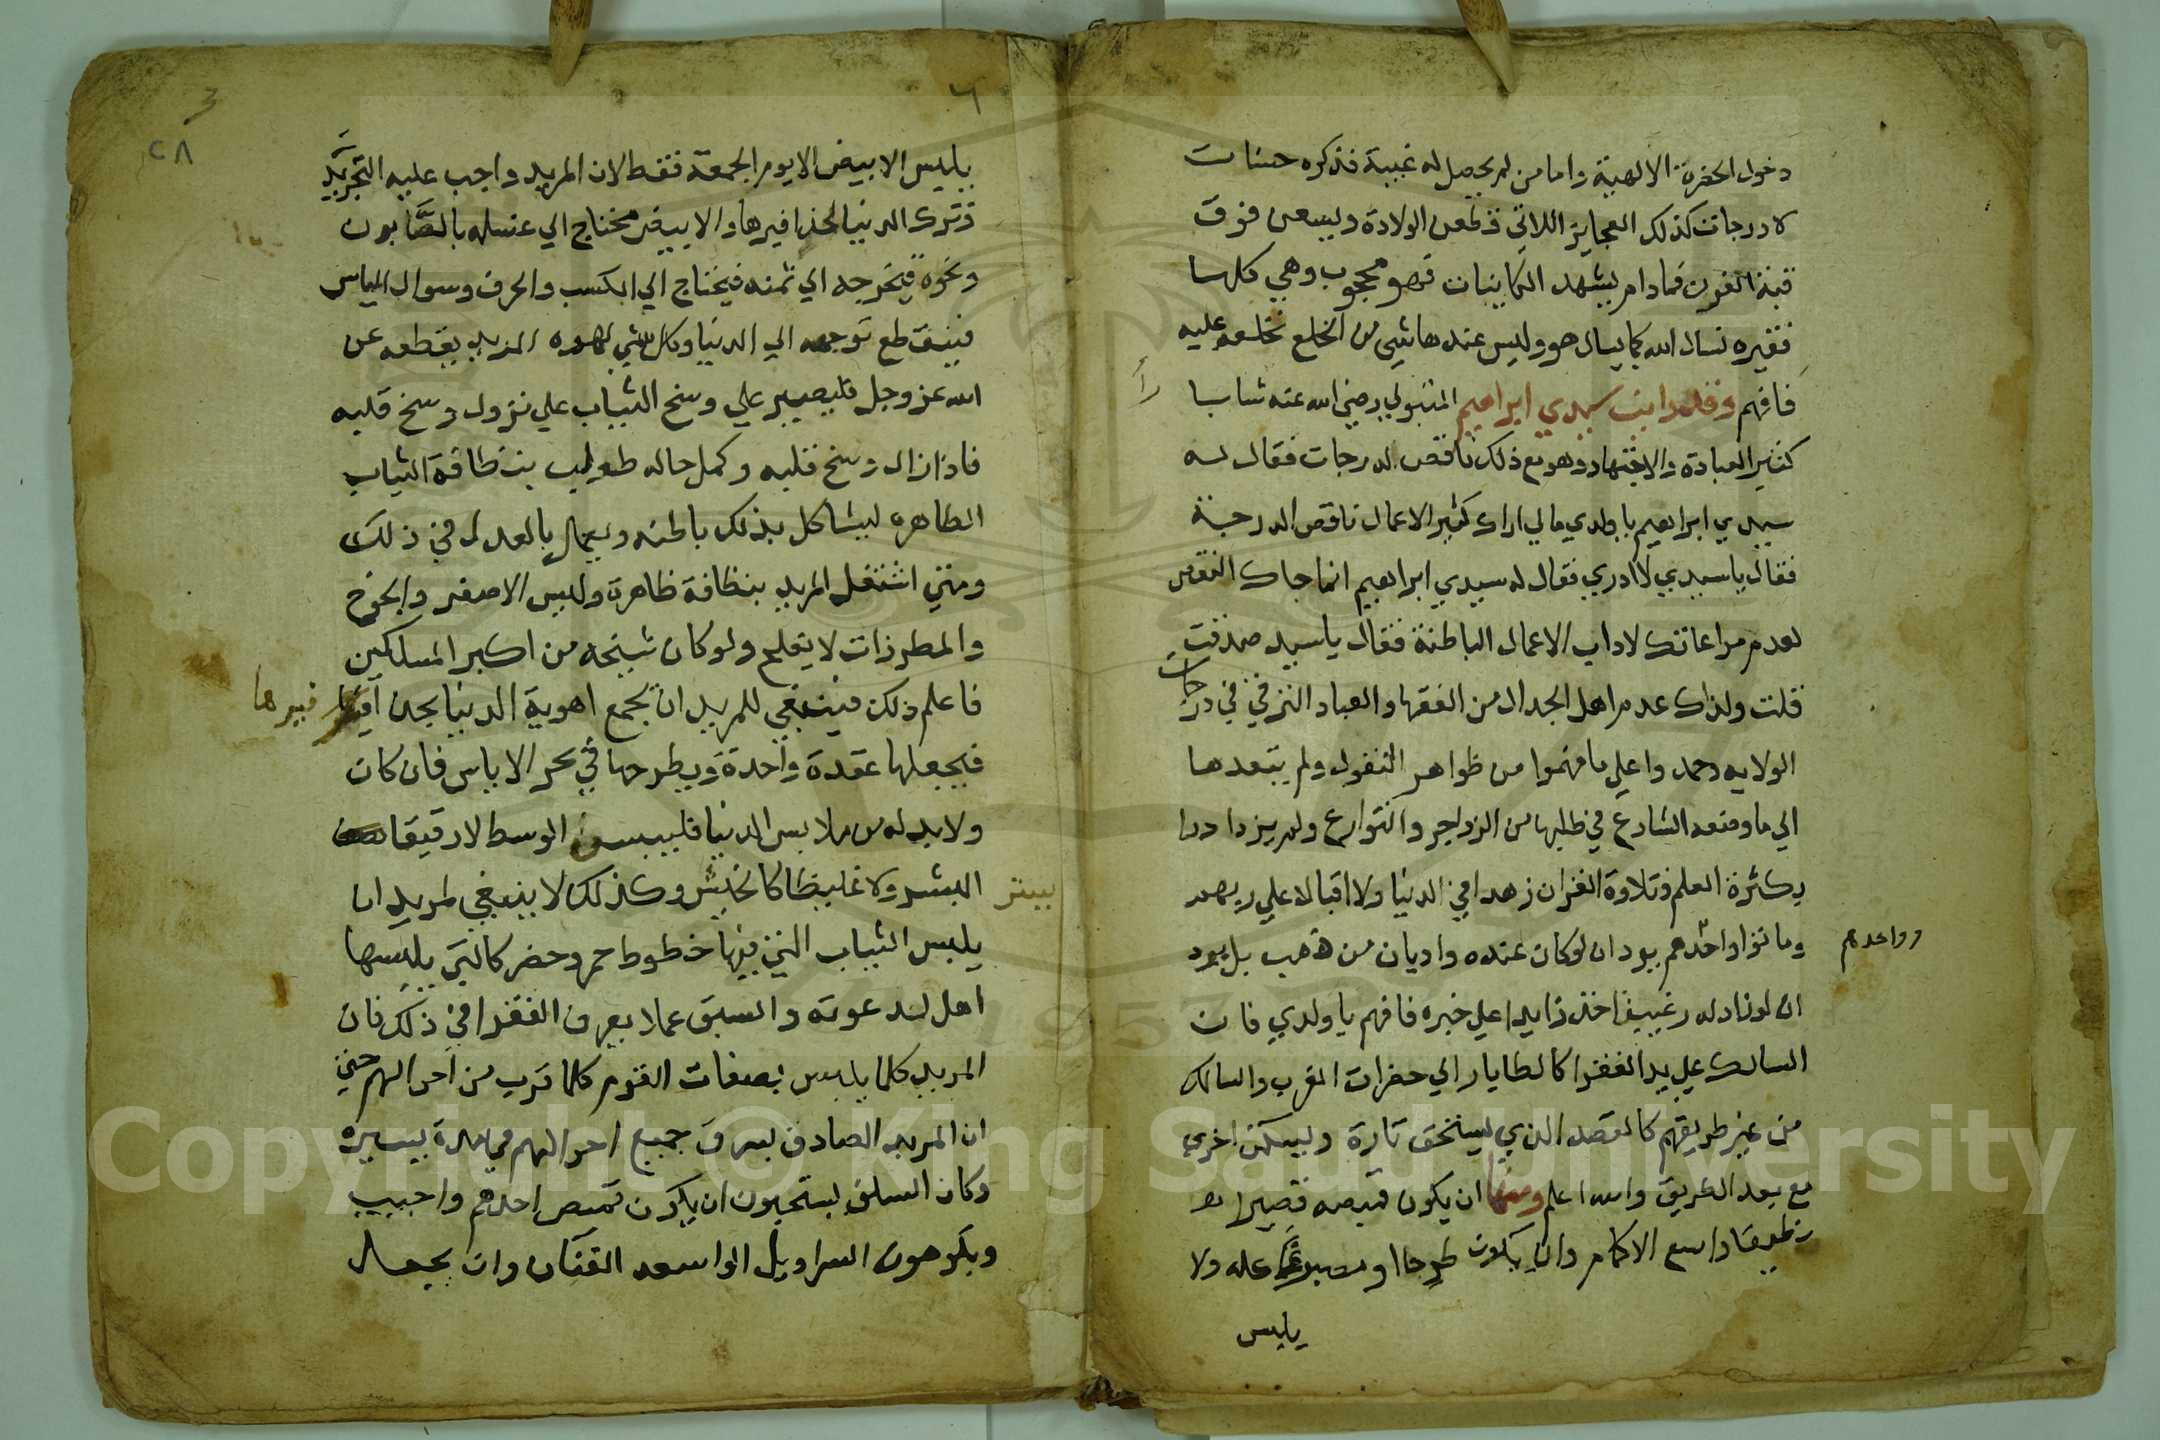 دخول الحضرة الالهية واما من لم يحصل له غيبة فذكره حسنات
لا درجات كذلك العجايز اللاتي قطعن الولادة وليسعن فوق
فما دام يشهد الكاينات فهو محجوب وهي كلها
فقيره تسال الله كما يسال هو وليس عندها شي من الخلع تخلعه عليه
فافهم وقد رايت سيدي ابراهيم المتبولي رضي الله عنه شابا
كثير العبادة والاجتهاد وهو مع ذلك ناقص الدرجات فقال له
سيدي ابراهيم يا ولدي مالي اراك كثير الاعمال ناقص الدرجة
فقال يا سيدي لا ادري فقال له سيدي ابراهيم انما جاك النقص
لعدم مراعاتك لاداب الاعمال الباطنة فقال يا سيد صدقت
قلت ولذلك عدم اهل الجدال من الفقها والعباد الترقي في درجات
الولايه وجمدوا علي ما فهموا من ظواهر النقول ولم يتعدها
الي ما وضعه الشارع في طلبها من الزواجر والقوارع ولم يزدادوا
بكثرة العلم وتلاوة القران زهدا في الدنيا ولا اقبالا علي ربهم
وما توا واحدهم يود ان لو كان عنده واديان من ذهب بل يود
وواحدهم
ان لو زاد له رغيفا اخذ زايدا علي خبزه فافهم يا ولدي فان
السالك علي يد الفقرا كالطاير الي حضرات القرب والسالك
من غير طريقهم كالمقعد الذي يستحق تارة ويسكن اخري
مع بعد الطريق والله اعلم ومنها ان يكون قميصه قصيرا
نظيفا واسع الاكمام وان يكون طرحا او مصبوغا كله ولا
يلبس
٢٨
يلبس الابيض الا يوم الجمعة فقط لان المريد واجب عليه التجريد
فترك الدنيا بحذافيرها والابيض محتاج الي غسله بالصابون
ونحوه فيخرجه الي ثمنه فيحتاج الي الكسب والحرف وسوال الناس
فينقطع توجهه الي الدنيا وكل شي المريد يقطعه عن
الله عز وجل فليصبر علي وسخ الثياب علي نزول وسخ قلبه
فاذا زال وسخ قلبه وكمل حاله طولب بنظافة الثياب
الظاهره ليشاكل بذلك باطنه ويعمل بالعدل في ذلك
ومتي اشتغل المريد بنظافة ظاهرة ولبس الاصفر والجوخ
والمطرزات لا يفلح ولو كان شيخه من اكبر المسلكين
فاعلم ذلك فينبغي للمريد ان يجمع اهوية الدنيا بحذافيرها
فيجعلها عقدة واحدة ويطرحها في بحر الاياس فان كان
ولا بد له من ملابس الدنيا فليلبس الوسط لا رقيقا
البشر ولا غليظا كالخيش وكذلك لا ينبغي لمريد ان
يلبس الثياب التي فيها خطوط حمر وخضر كالتي يلبسها
اهل لدعونه والسبق عملا بعرف الفقرا في ذلك فان
المريد كلما يلبس بصفات القوم كلما قرب من احوالهم حتي
ان المريد الصادق يسرق جميع احوالهم في مدة يسيره
وكان السلف يستحبون ان يكون قميص احدهم واجبب
ويكرهون السراويل الواسعه القنان وان يجعل